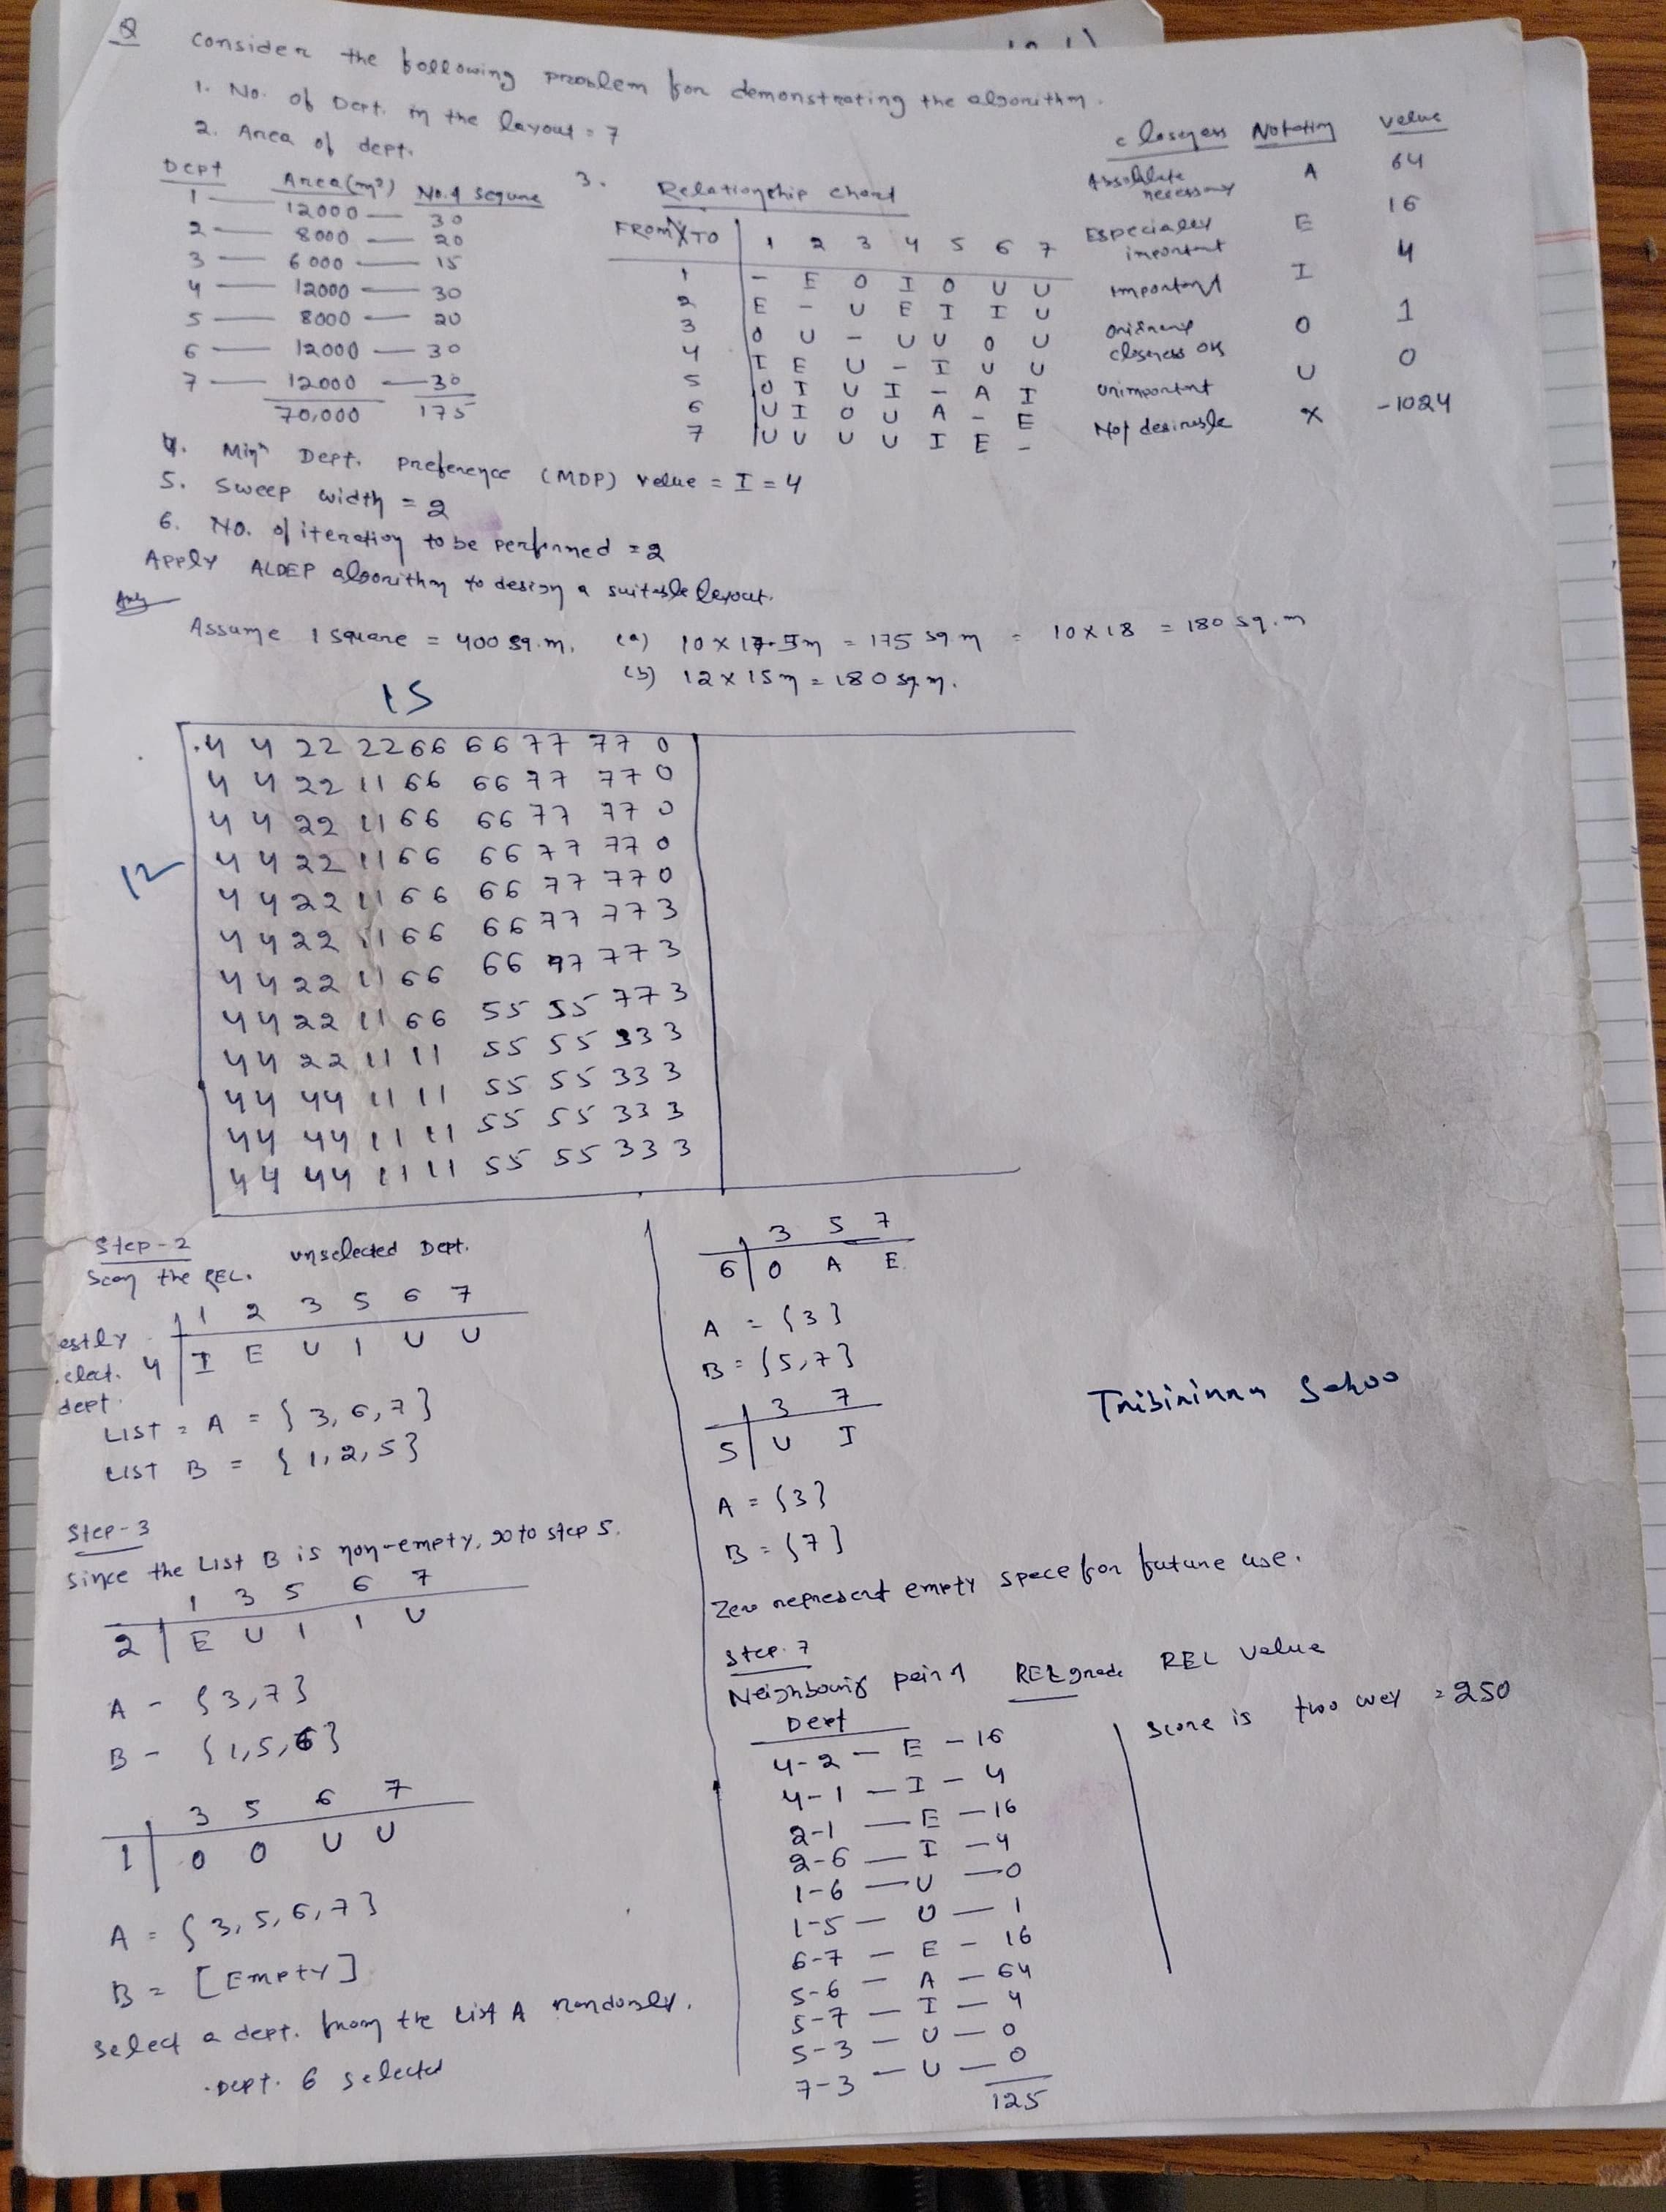 Q Consider the following problem for demonstrating the algorithm.
1. No. of Dept. in the layout = 7
2. Area of dept.
Dept Area(m²) No. of sequre
1 — 12000 — 30
2 — 8000 — 20
3 — 6000 — 15
4 — 12000 — 30
5 — 8000 — 20
6 — 12000 — 30
7 — 12000 — 30
70,000 175
3. Relationship chart
FROM TO 1 2 3 4 5 6 7
1 - E O I O U U
2 E - U E I I U
3 O U - U U O U
4 I E U - I U U
5 O I U I - A I
6 U I O U A - E
7 U U U U I E -
closeness Notation value
Absolulate necessary A 64
Especialey important E 16
important I 4
Ordinary closeness OK O 1
Unimportant U 0
Not desirable X -1024
4. Min^m Dept. preference (MDP) value = I = 4
5. Sweep width = 2
6. No. of iteration to be performed = 2
Apply ALDEP algorithm to design a suitable layout.
Ans
Assume 1 square = 400 sq.m. (a) 10 x 17.5m = 175 sq m = 10 x 18 = 180 sq.m
(b) 12 x 15m = 180 sq.m.
15
12
4 4 22 22 66 66 77 77 0
4 4 22 11 66 66 77 77 0
4 4 22 11 66 66 77 77 0
4 4 22 11 66 66 77 77 0
4 4 22 11 66 66 77 77 0
4 4 22 11 66 66 77 77 3
4 4 22 11 66 66 77 77 3
44 22 11 66 55 55 77 3
44 22 11 11 55 55 33 3
44 44 11 11 55 55 33 3
44 44 11 11 55 55 33 3
44 44 11 11 55 55 33 3
Step-2
Scan the REL. unselected Dept.
1 2 3 5 6 7
estly elect. dept. 4 I E U I U U
LIST = A = {3, 6, 7}
LIST B = {1, 2, 5}
Step-3
Since the List B is non-empty, go to step 5.
1 3 5 6 7
2 E U I I U
A - {3, 7}
B - {1, 5, 6}
3 5 6 7
1 O O U U
A = {3, 5, 6, 7}
B = [Empty]
Select a dept. from the List A randomly.
Dept. 6 selected
3 5 7
6 O A E
A = {3}
B = {5, 7}
3 7
5 U I
A = {3}
B = {7}
Zero represent empty space for future use.
Step. 7
Neighbouring pair of Dept REL grade REL value
4-2 — E — 16
4-1 — I — 4
2-1 — E — 16
2-6 — I — 4
1-6 — U — 0
1-5 — O — 1
6-7 — E — 16
5-6 — A — 64
5-7 — I — 4
5-3 — U — 0
7-3 — U — 0
125
Score is two way = 250